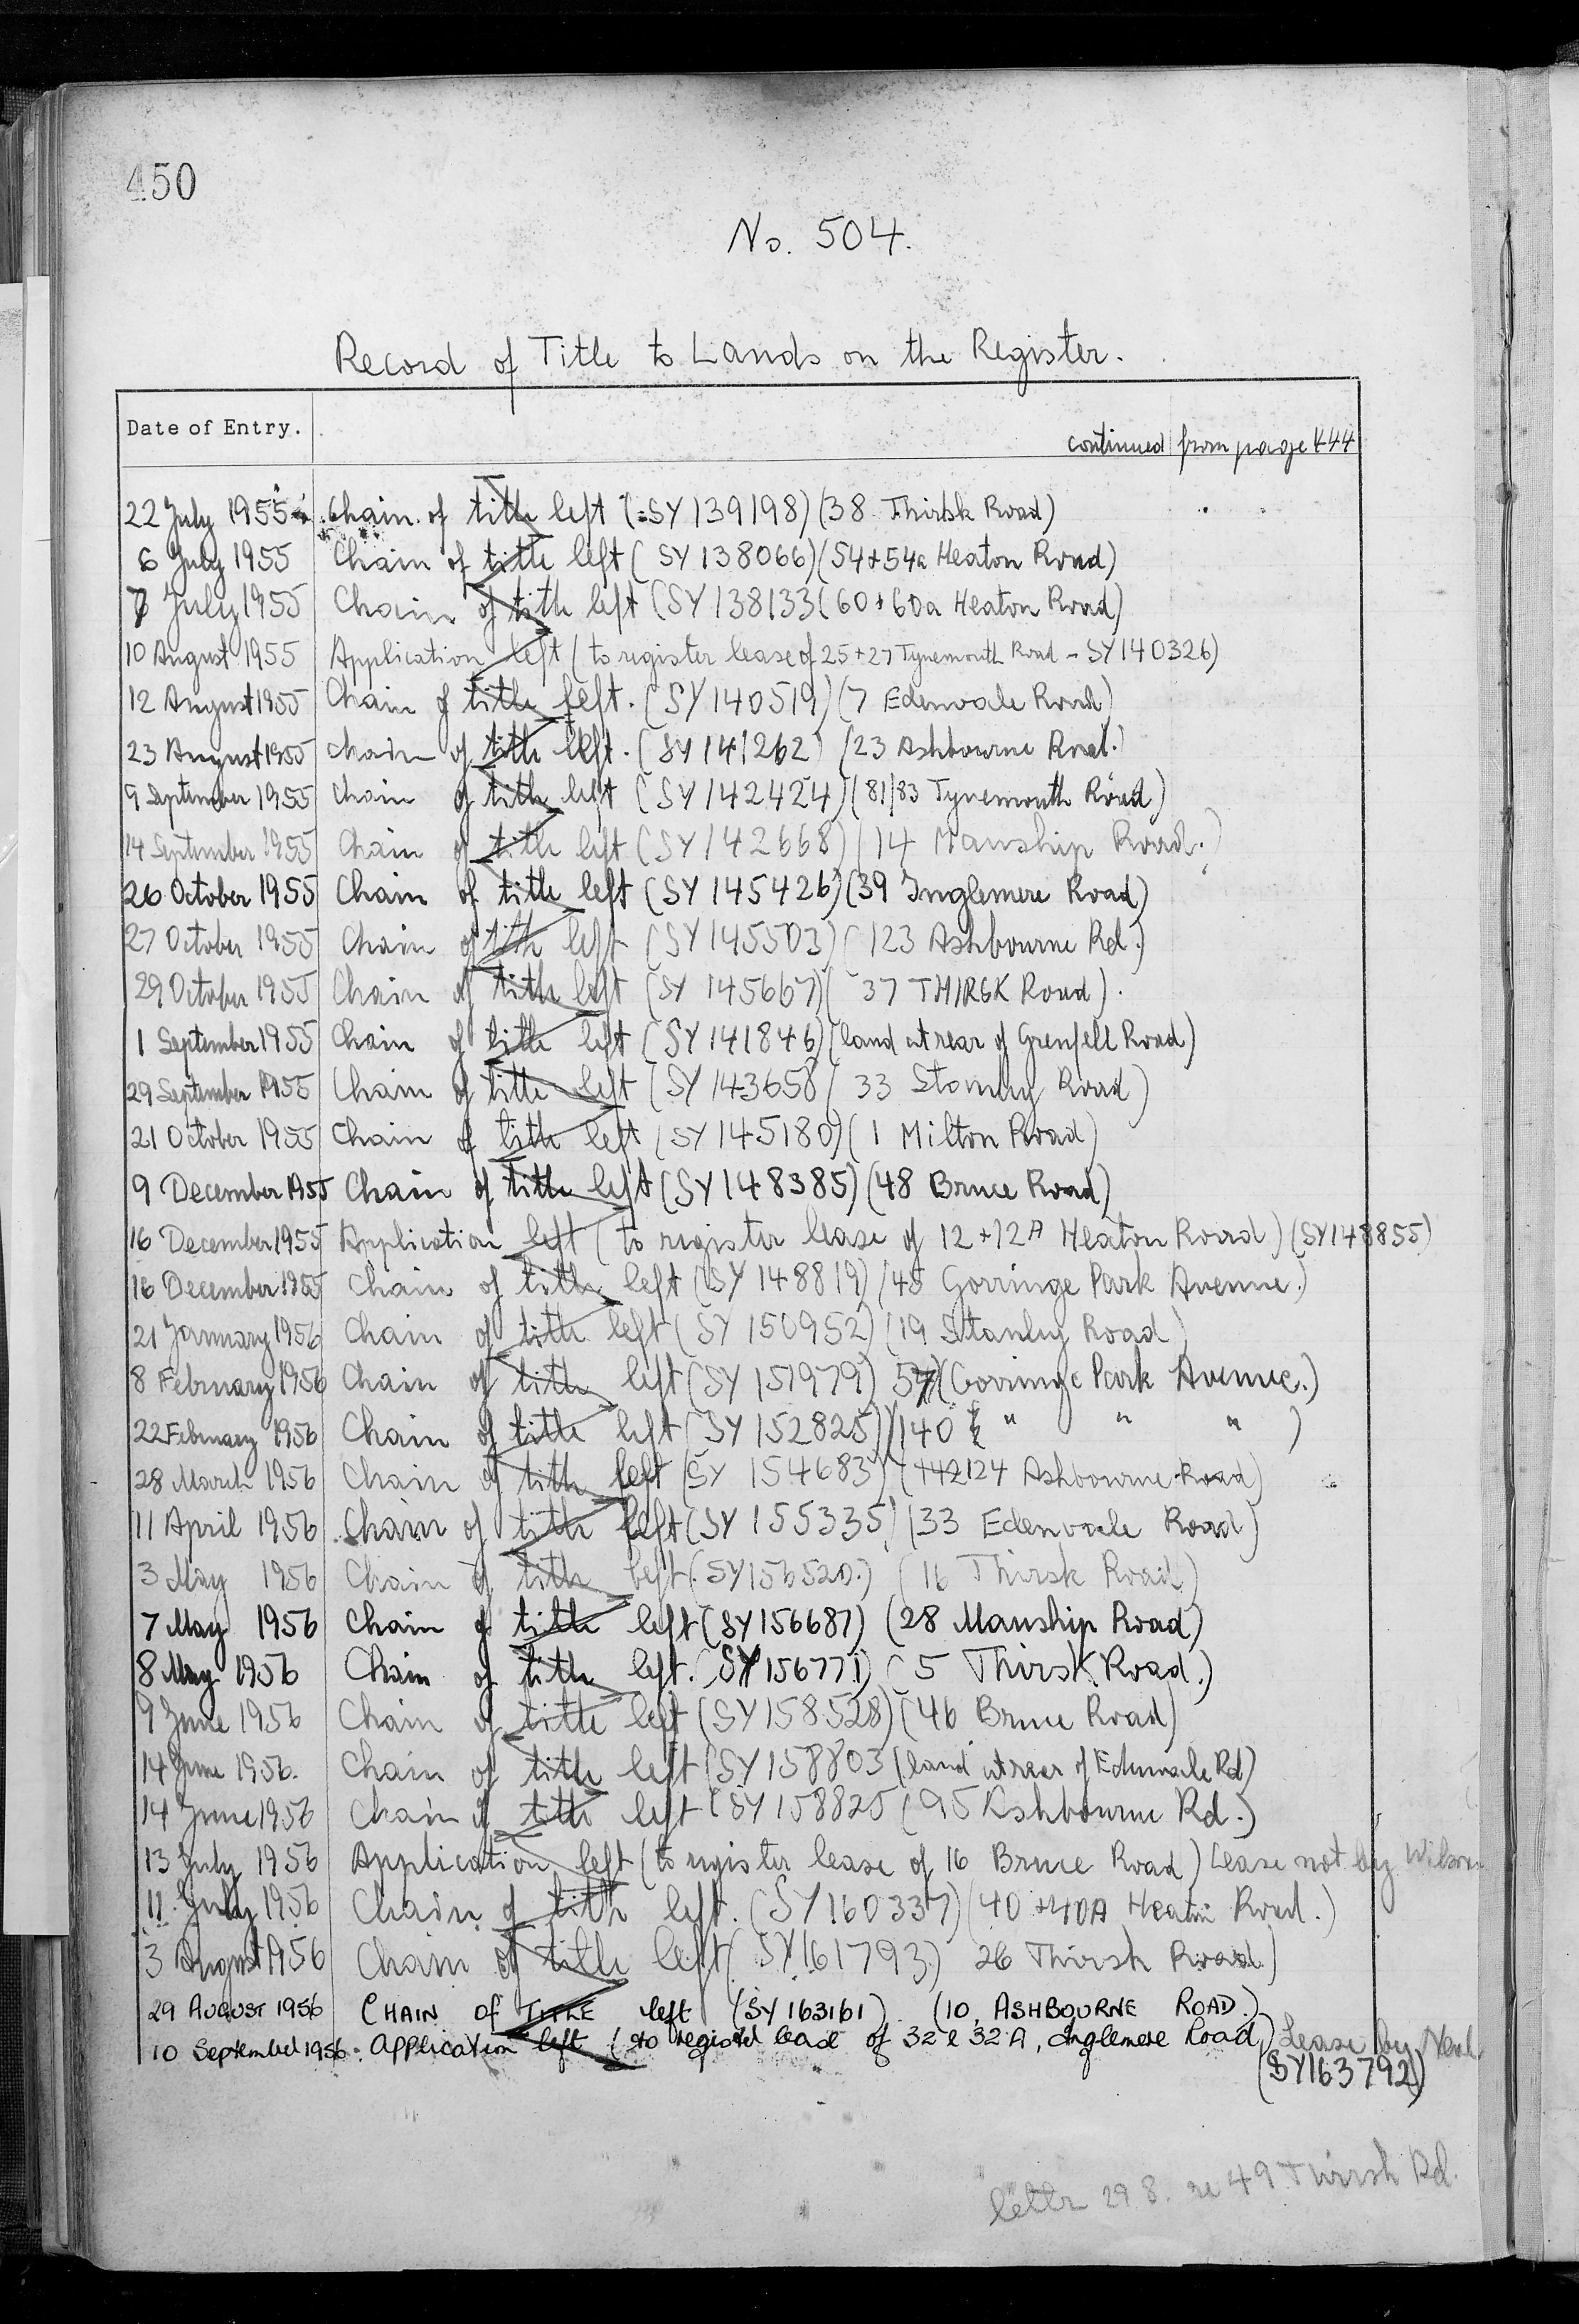 450
No. 504.
Record of Title to Lands on the Register.
Date of Entry.
continued from page 444
22 July 1955 Chain of title left (SY 139198) (38 Thirsk Road)
6 July 1955 Chain of title left (SY 138066) (54+54a Heaton Road)
7 July 1955 Chain of title left (SY 138133 (60+60a Heaton Road)
10 August 1955 Application left (to register lease of 25+27 Tynemouth Road - SY140326)
12 August 1955 Chain of title left. (SY 140519) (7 Edenvale Road)
23 August 1955 Chain of title left. (SY 141262) (23 Ashbourne Road.)
9 September 1955 Chain of title left (SY 142424) (81/83 Tynemouth Road)
14 September 1955 Chain of title left (SY 142668) (14 Manship Road.)
26 October 1955 Chain of title left (SY 145426) (39 Inglemere Road)
27 October 1955 Chain of title left (SY 145503) (123 Ashbourne Rd.)
29 October 1955 Chain of title left (SY 145667) (37 THIRSK Road).
1 September 1955 Chain of title left (SY 141846) (land at rear of Grenfell Road)
29 September 1955 Chain of title left (SY 143658 (33 Road)
21 October 1955 Chain of title left (SY 145180) (1 Milton Road)
9 December 1955 Chain of title left (SY 148385) (48 Bruce Road)
16 December 1955 Application left (to register lease of 12+12A Heaton Road) (SY148855)
16 December 1955 Chain of title left (SY 148819) (45 Gorringe Park Avenue.)
21 January 1956 Chain of title left (SY 150952) (19 Stanley Road)
8 February 1956 Chain of title left (SY 151979) 57 (Gorringe Park Avenue.)
22 February 1956 Chain of title left (SY 152825) (140 " " " )
28 March 1956 Chain of title left (SY 154683) (124 Ashbourne Road)
11 April 1956 Chain of title left (SY 155335) (33 Edenvale Road)
3 May 1956 Chain of title left (SY156520.) (16 Thirsk Road)
7 May 1956 Chain of title left (SY156687) (28 Manship Road)
8 May 1956 Chain of title left. (SY 156771) (5 Thirsk Road.)
9 June 1956 Chain of title left (SY 158528) (46 Bruce Road)
14 June 1956. Chain of title left (SY 158803 (land at rear of Edenvale Rd)
14 June 1956 Chain of title left (SY 158825 (95 Ashbourne Rd.)
13 July 1956 Application left (to register lease of 16 Bruce Road) Lease not by Wilson
11. July 1956 Chain of title left. (SY 160337) (40+40A Heaton Road.)
3 August 1956 Chain of title left (SY 161793) 26 Thirsk Road)
29 AUGUST 1956 CHAIN of TITLE left (SY 163161) (10, ASHBOURNE ROAD.)
10 September 1956. Application left (to register lease of 32 & 32A, Inglemere Road) Lease by
(SY163792)
letter 29.8. re 49 Thirsk Rd.